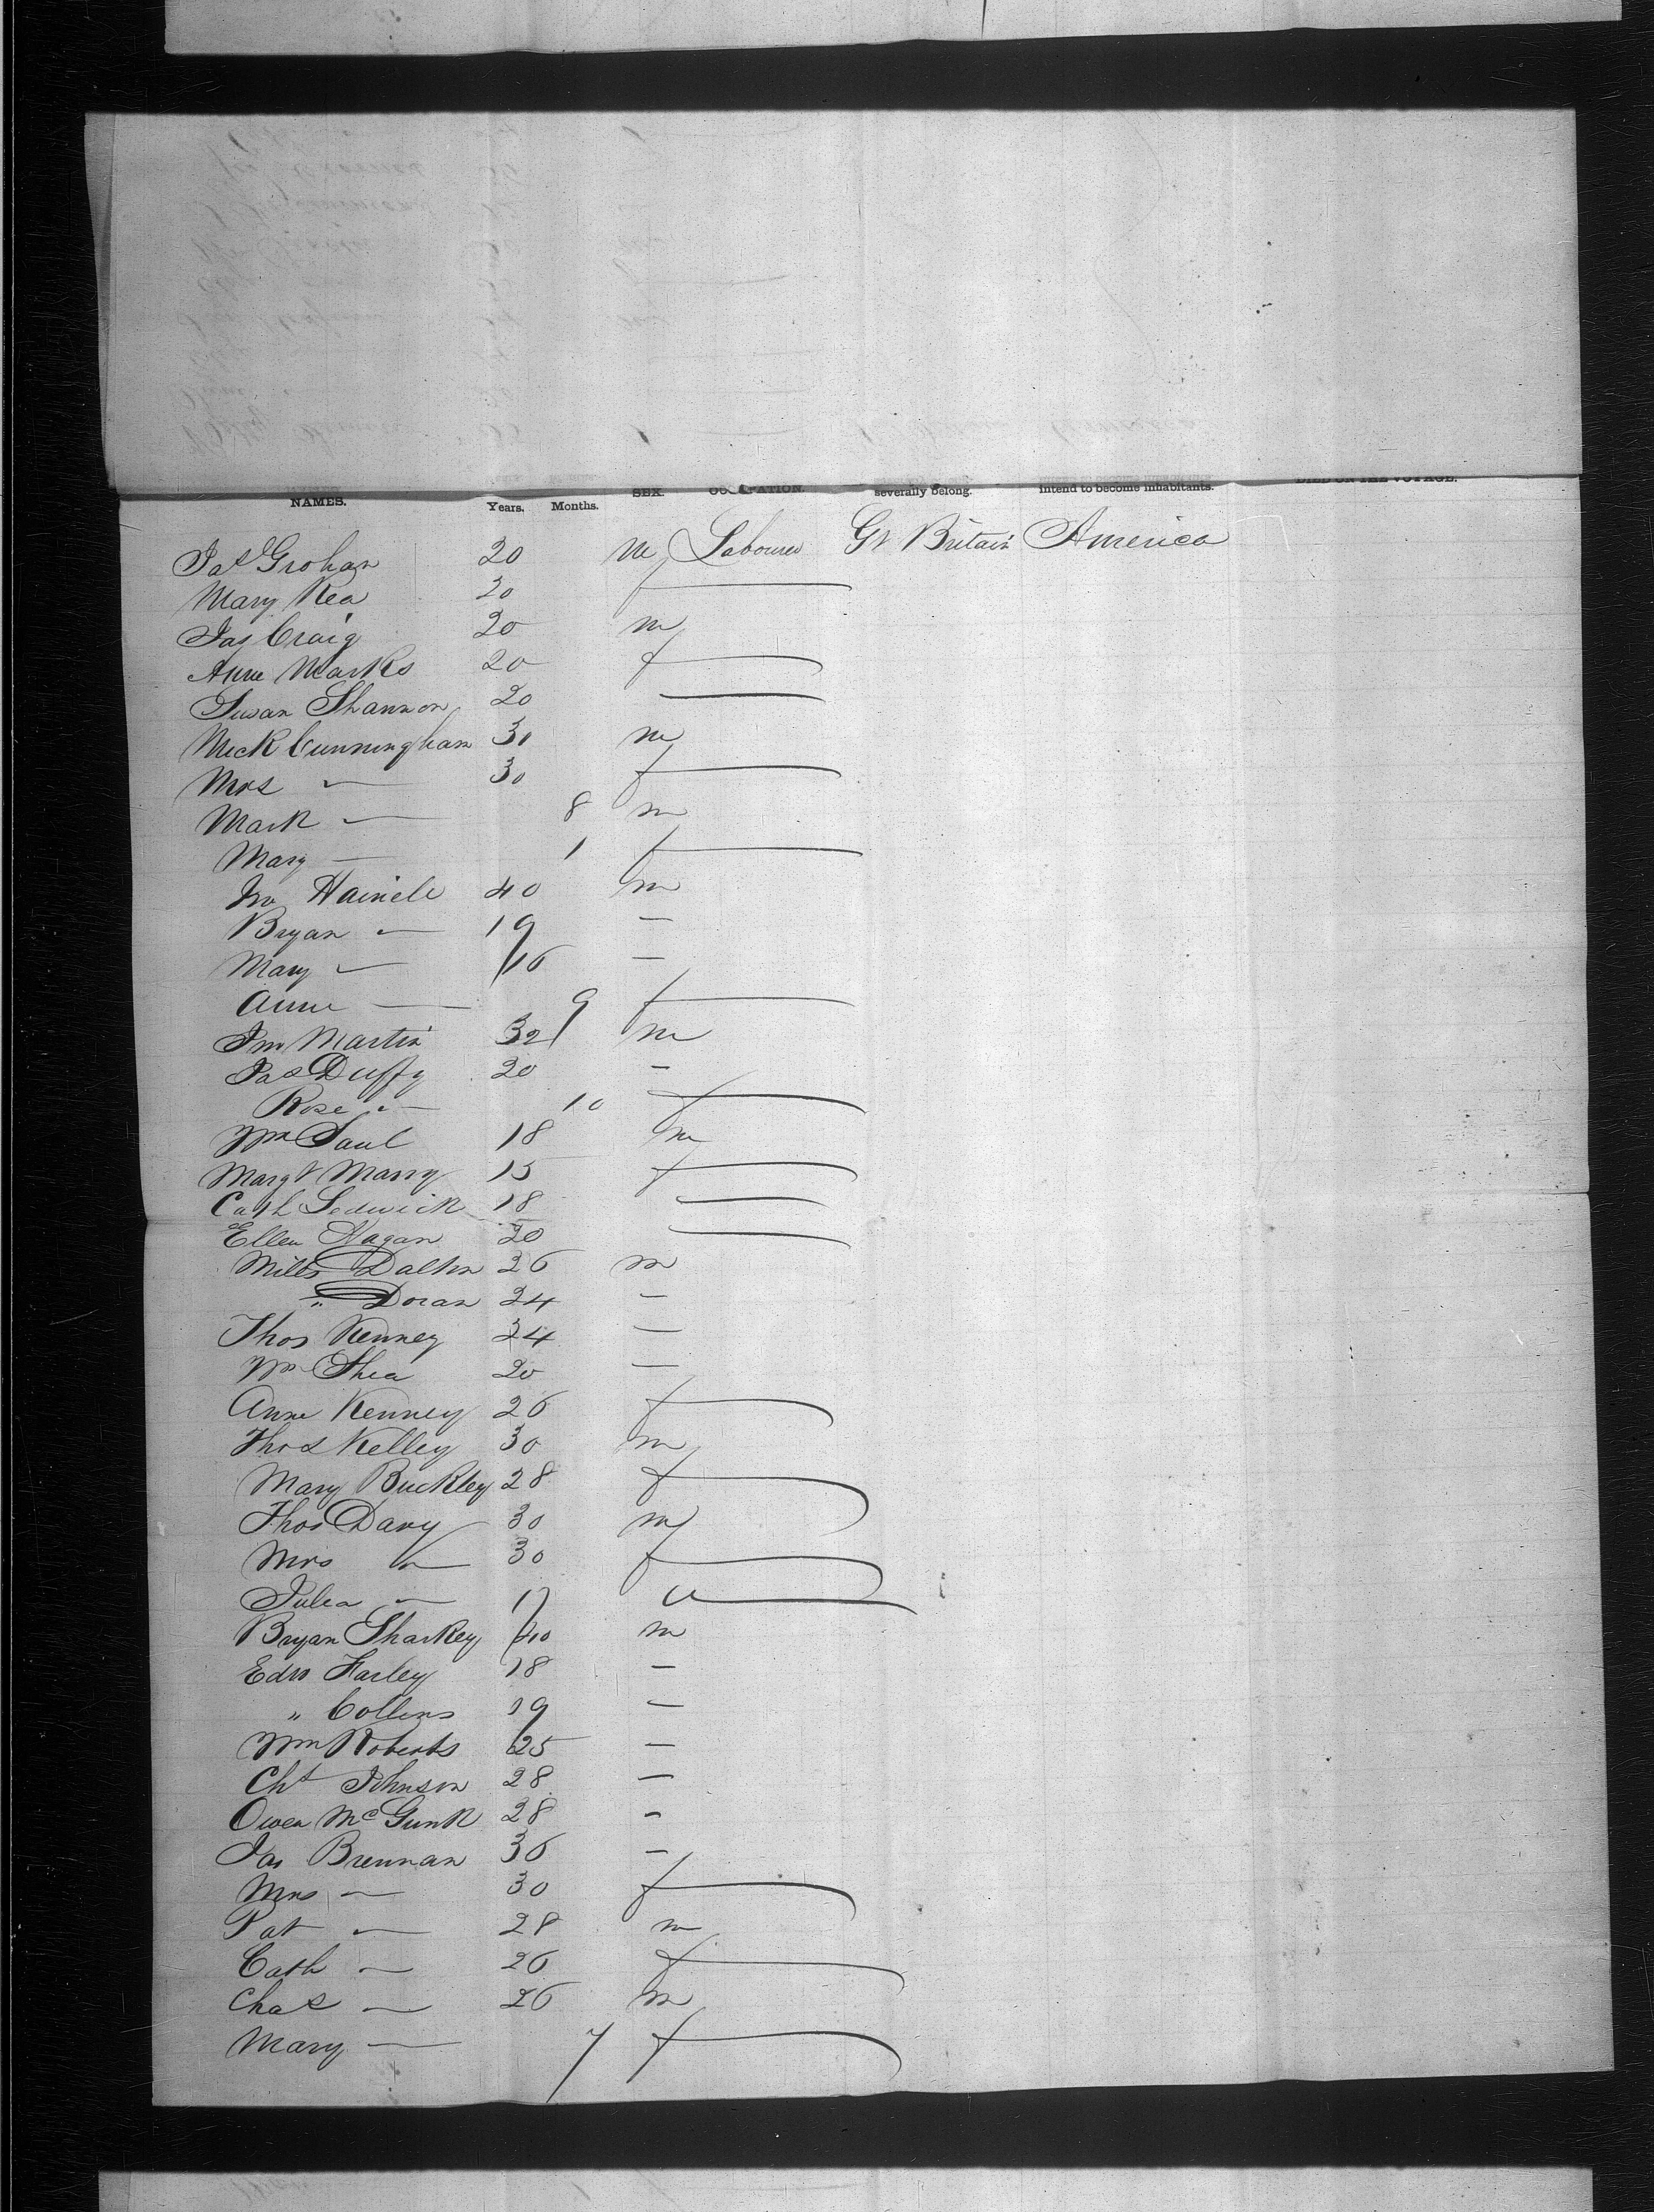 NAMES. Years. Months. SEX. OCCUPATION. severally belong. intend to become inhabitants. DIED ON THE VOYAGE.
Jas Grohan 20 m Labourer Gt Britain America
Mary Rea 20 f
Jas Craig 20 m
Anne Marks 20 f
Susan Shannon 20
Mick Cunningham 30 m
Mrs — 30 f
Mark — 8 m
Mary — 1 f
Jno 40 m
Bryan — 19 —
Mary — 16 —
Anne — 9 f
Jno Martin 32 m
Jas Duffy 20 —
Rose — 10 f
Wm Saul 18 m
Margt Marry 15 f
Cath Sedwick 18
Ellen Hagan 20
Dalton 26 m
" Doran 24 —
Thos Kenney 24 —
Wm Shea 20 —
Anne Kenney 26 f
Thos Kelley 30 m
Mary Buckley 28 f
Thos Davy 30 m
Mrs — 30 f
Julia — 17
Bryan Sharkey 40 m
Edw Farley 18 —
" Collins 19 —
Wm Roberts 25 —
Cht Johnson 28 —
Owen McGunk 28 —
Jas Brennan 36 —
Mrs — 30 f
Pat — 28 m
Cath — 26 f
Chas — 26 m
Mary — 7 f